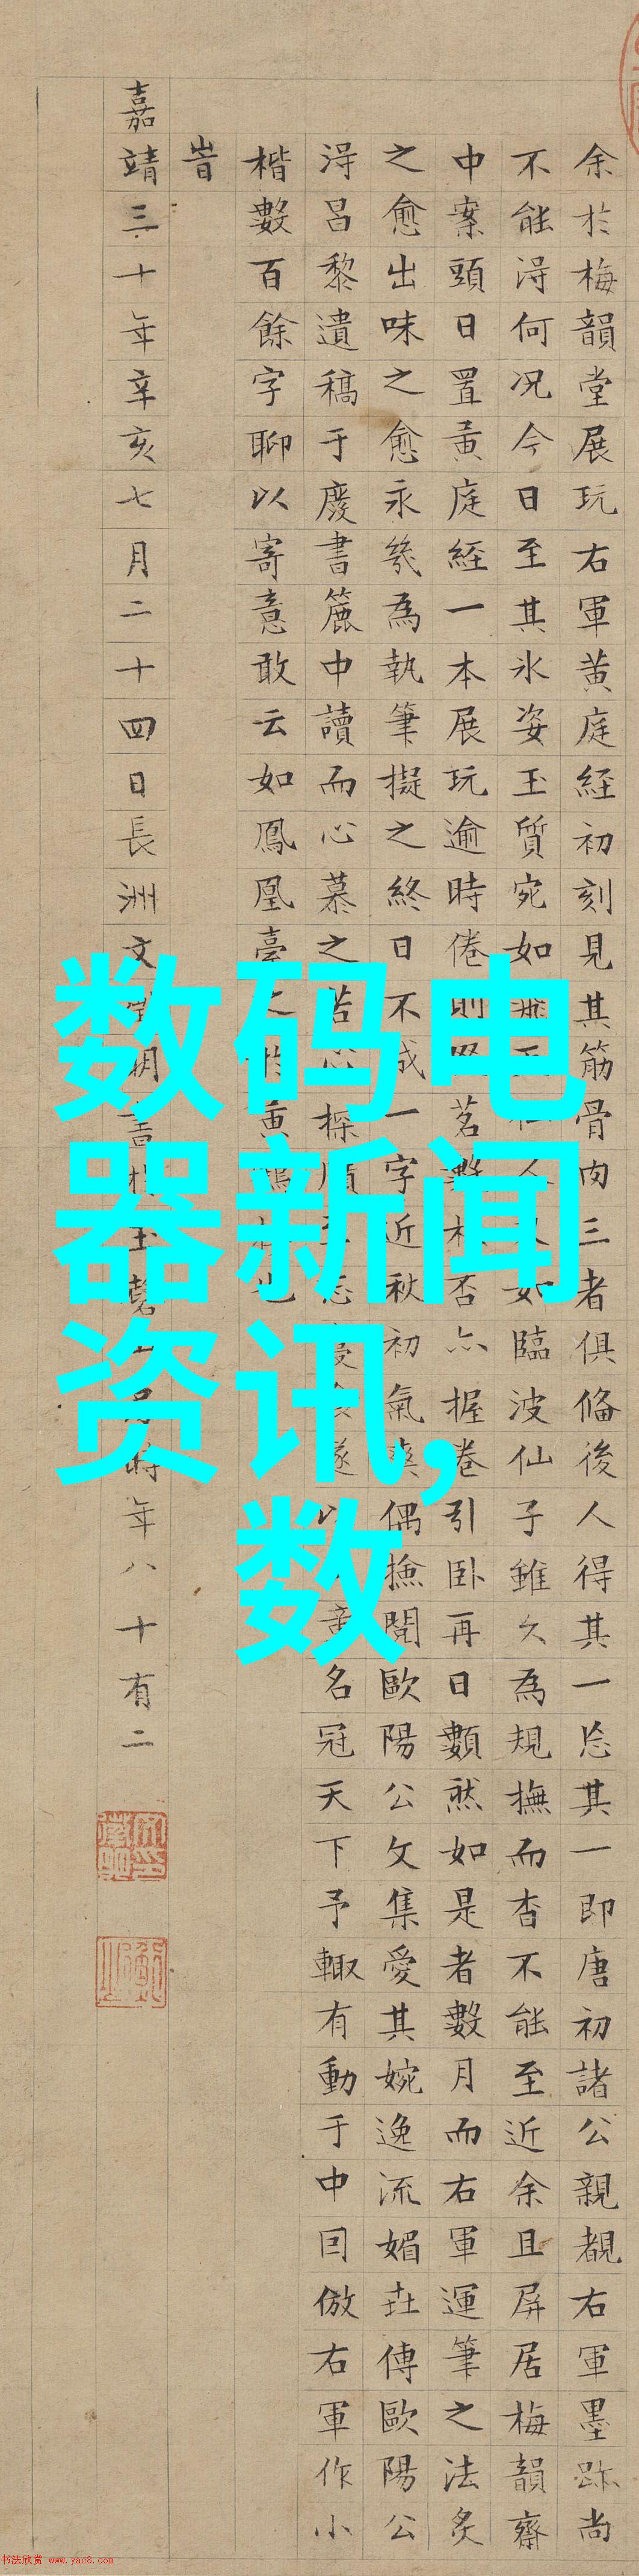 余於梅韻堂展玩右軍黃庭經初刻見其筋骨肉三者俱俻後人得其一忘其一即唐初諸公親覩右軍墨跡尚
不能淂何况今日至其氷姿玉質宛如 人 如臨波仙子雖久為規撫而杳不能至近余且屏居梅韻齋
中案頭日置黃庭経一本展玩逾時倦則 茗數杯否亦握卷引卧再日數然如是者數月而右軍運筆之法炙
之愈出味之愈永幾為執筆擬之終日不成一字近秋初氣爽偶撿閱歐陽公文集愛其婉逸流媚 傳歐陽公
淂呂黎遺稿于廢書簏中讀而心慕之苦心探賾 忘 遂以 名冠天下予輙有動于中囙倣右軍作小
楷數百餘字聊以寄意敢云如鳳凰臺之於黄鶴 也
旹
嘉靖三十年辛亥七月二十四日長洲文 明書 玉磬山房時年八十有二
数码电
器新闻
资讯,
数
书法欣赏 www.yac8.com